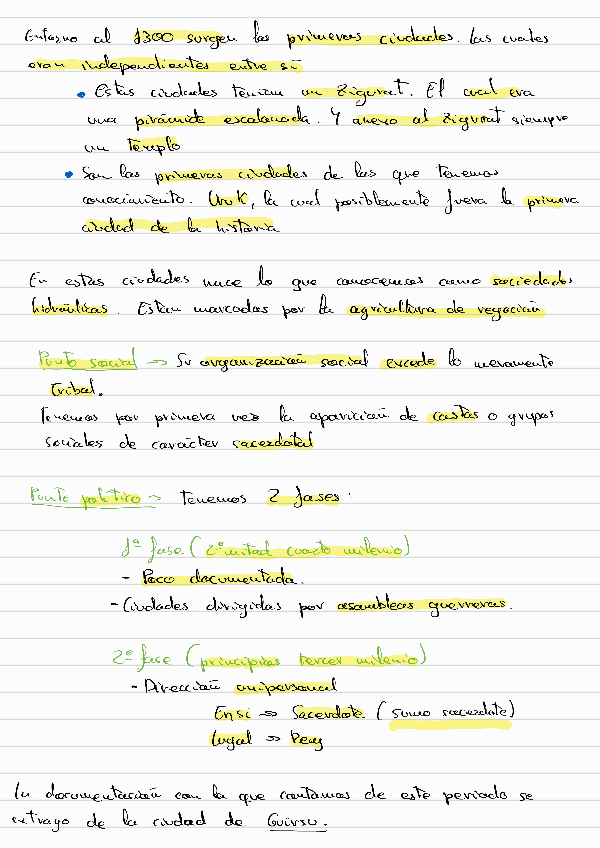 Entorno al 3300 surgen las primeras ciudades. Las cuales
eran independientes entre sí
• Estas ciudades tenían un Zigurat. El cual era
una pirámide escalonada. Y anexo al Zigurat siempre
un Templo
• Son las primeras ciudades de las que tenemos
conocimiento. Uruk, la cual posiblemente fuera la primera
ciudad de la historia
En estas ciudades nace lo que conocemos como sociedades
hidráulicas. Estan marcadas por la agricultura de regación
Punto social → Su organización social excede lo meramente
tribal.
Tenemos por primera vez la aparición de castas o grupos
sociales de carácter sacerdotal
Punto político → Tenemos 2 fases.
1ª fase (2ª mitad cuarto milenio)
- Poco documentada.
- Ciudades dirigidas por asambleas guerreras.
2ª fase (principios tercer milenio)
- Dirección unipersonal
Ensi ⇒ Sacerdote (sumo sacerdote)
Lugal ⇒ Rey
La documentación con la que contamos de este periodo se
extrajo de la ciudad de Guirsu.